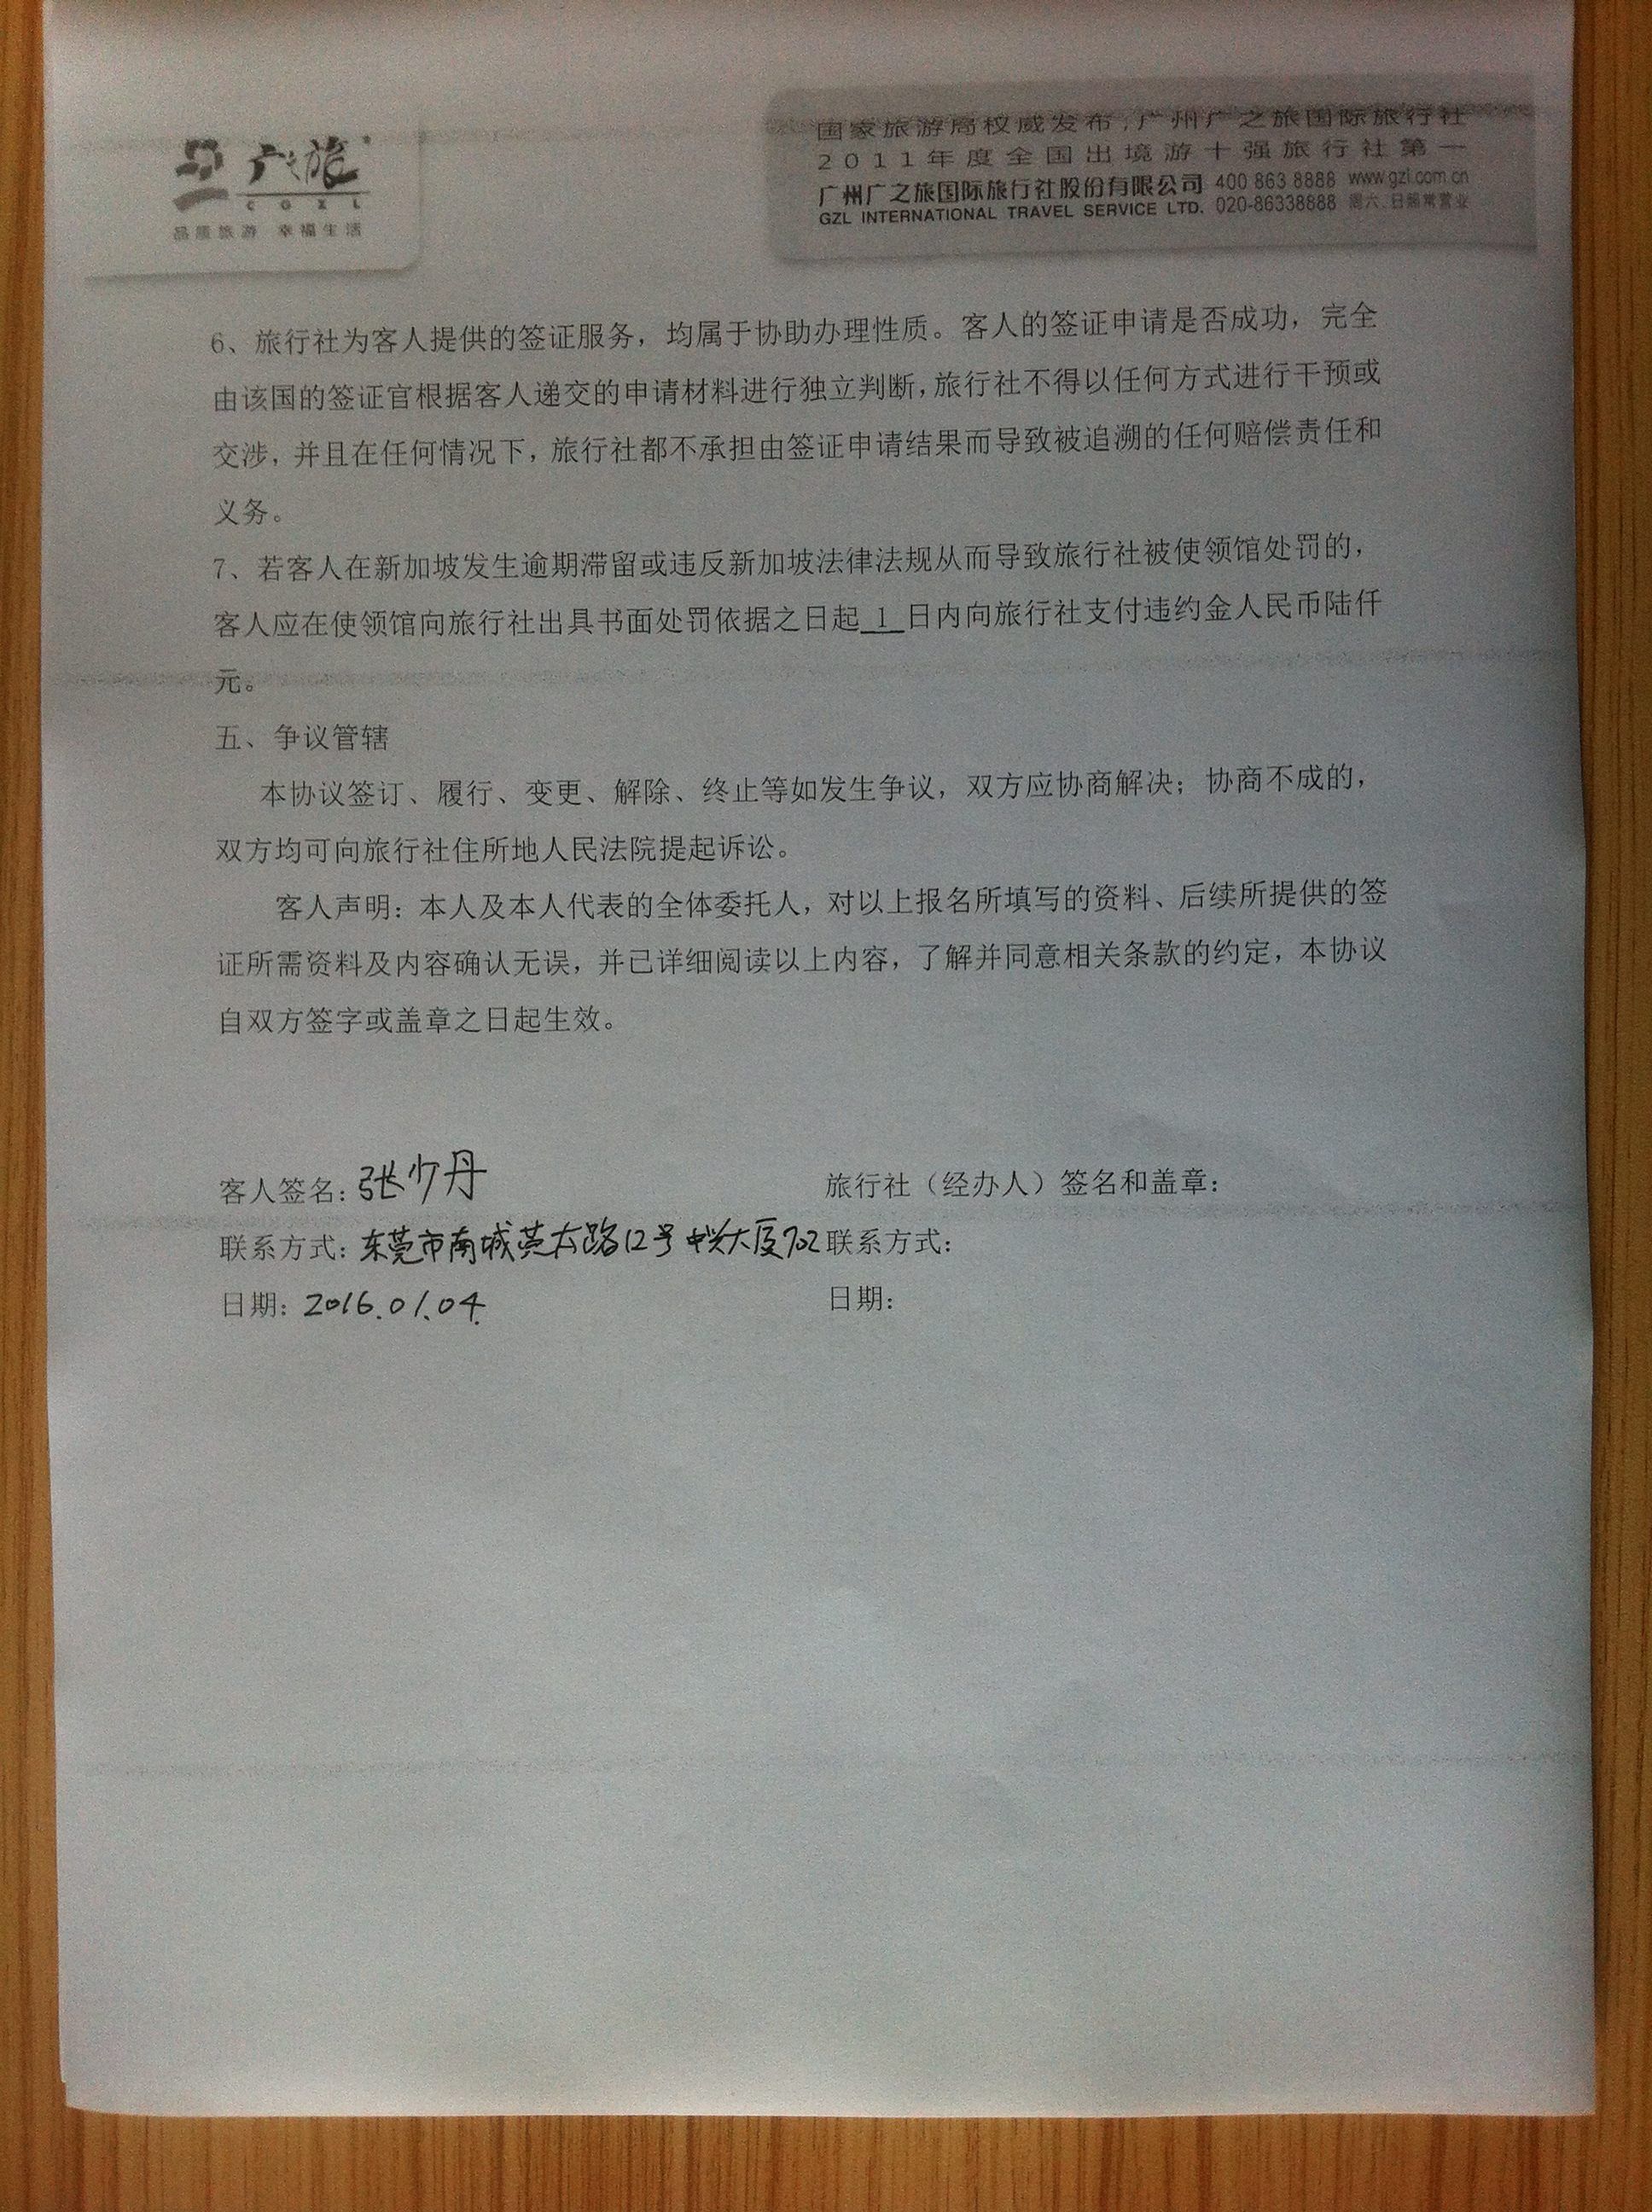 广之旅
C G Z L
品质旅游 幸福生活
国家旅游局权威发布,广州广之旅国际旅行社
2011年度全国出境游十强旅行社第一
广州广之旅国际旅行社股份有限公司 400 863 8888 www.gzl.com.cn
GZL INTERNATIONAL TRAVEL SERVICE LTD. 020-86338888 周六、日照常营业
6、旅行社为客人提供的签证服务，均属于协助办理性质。客人的签证申请是否成功，完全
由该国的签证官根据客人递交的申请材料进行独立判断，旅行社不得以任何方式进行干预或
交涉，并且在任何情况下，旅行社都不承担由签证申请结果而导致被追溯的任何赔偿责任和
义务。
7、若客人在新加坡发生逾期滞留或违反新加坡法律法规从而导致旅行社被使领馆处罚的，
客人应在使领馆向旅行社出具书面处罚依据之日起 1 日内向旅行社支付违约金人民币陆仟
元。
五、争议管辖
本协议签订、履行、变更、解除、终止等如发生争议，双方应协商解决；协商不成的，
双方均可向旅行社住所地人民法院提起诉讼。
客人声明：本人及本人代表的全体委托人，对以上报名所填写的资料、后续所提供的签
证所需资料及内容确认无误，并已详细阅读以上内容，了解并同意相关条款的约定，本协议
自双方签字或盖章之日起生效。
客人签名：张少丹 旅行社（经办人）签名和盖章：
联系方式：东莞市南城莞太路12号 大厦702 联系方式：
日期：2016.01.04. 日期：